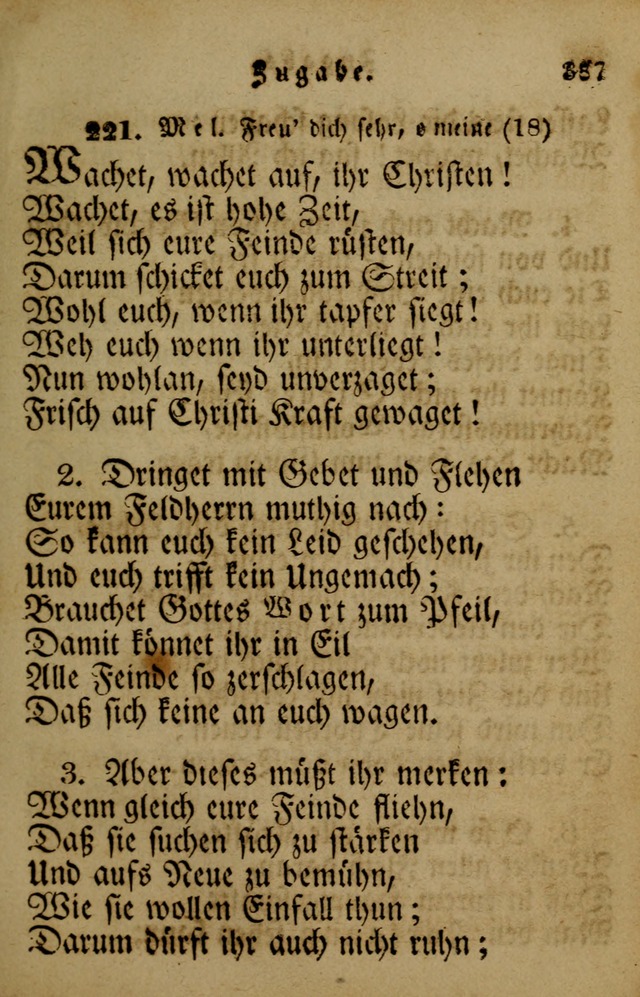 Zugabe. 357
221. Mel. Freu' dich sehr, o meine (18)
Wachet, wachet auf, ihr Christen!
Wachet, es ist hohe Zeit,
Weil sich eure Feinde rüsten,
Darum schicket euch zum Streit;
Wohl euch, wenn ihr tapfer siegt!
Weh euch wenn ihr unterliegt!
Nun wohlan, seyd unverzaget;
Frisch auf Christi Kraft gewaget!
2. Dringet mit Gebet und Flehen
Eurem Feldherrn muthig nach:
So kann euch kein Leid geschehen,
Und euch trifft kein Ungemach;
Brauchet Gottes Wort zum Pfeil,
Damit könnet ihr in Eil
Alle Feinde so zerschlagen,
Daß sich keine an euch wagen.
3. Aber dieses müßt ihr merken:
Wenn gleich eure Feinde fliehn,
Daß sie suchen sich zu stärken
Und aufs Neue zu bemühn,
Wie sie wollen Einfall thun;
Darum dürft ihr auch nicht ruhn;